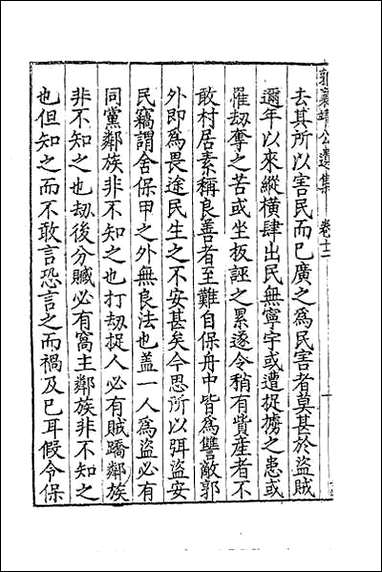 郭襄靖公遺集 卷十二
去其所以害民而已廣之為民害者莫甚於盜賊
邇年以來縱橫肆出民無寧宇或遭捉擄之患或
罹劫奪之苦或坐扳誣之累遂令稍有貲產者不
敢村居素稱良善者至難自保舟中皆為讐敵郭
外即為畏途民生之不安甚矣今思所以弭盜安
民竊謂舍保甲之外無良法也蓋一人為盜必有
同黨鄰族非不知之也打劫捉人必有賊蹻鄰族
非不知之也劫後分贓必有窩主鄰族非不知之
也但知之而不敢言恐言之而禍及已耳假令保